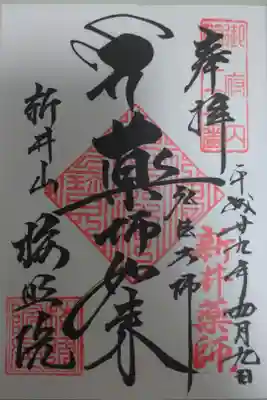 奉拝
御府内
平成廿九年四月九日
新井薬師
弘法大師
薬師如来
新井山
梅照院